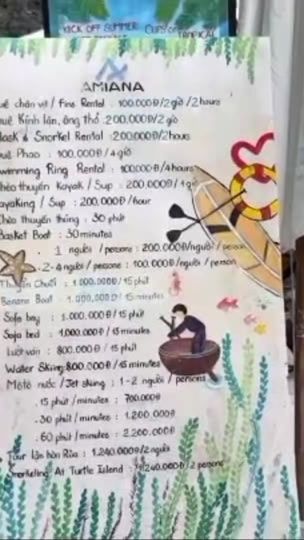 KICK OFF SUMMER
AMIANA
uê chân vịt / Fins Rental : 100.000đ/2 giờ / 2 hours
uê Kính lặn, ống thở : 200.000đ/2 giờ
Mask & Snorkel Rental : 200.000đ/2 hours
uê Phao : 100.000đ/4 giờ
wimming Ring Rental : 100.000đ/4 hours
hèo thuyền Kayak / Sup : 200.000đ/1 g
ayaking / Sup : 200.000đ/hour
Chèo thuyền thúng : 30 phút
Basket Boat : 30 minutes
. 1 người / persons : 200.000đ/người / person
. 2-4 người / persons : 100.000đ/người / person
Thuyền Chuối : 1.000.000đ/15 phút
Banana Boat : 1.000.000đ/15 minutes
Sofa bay : 1.000.000đ/15 phút
Sofa bed : 1.000.000đ/15 minutes
Lướt ván : 800.000đ/15 phút
Water Skiing: 800.000đ/15 minutes
Môtô nước / Jet skiing : 1-2 người / persons
. 15 phút/minutes : 700.000đ
. 30 phút/minutes : 1.200.000đ
. 60 phút/minutes : 2.200.000đ
Tour lặn hòn Rùa : 1.240.000đ/2 người
norkeling At Turtle Island : 1.240.000đ/2 persons